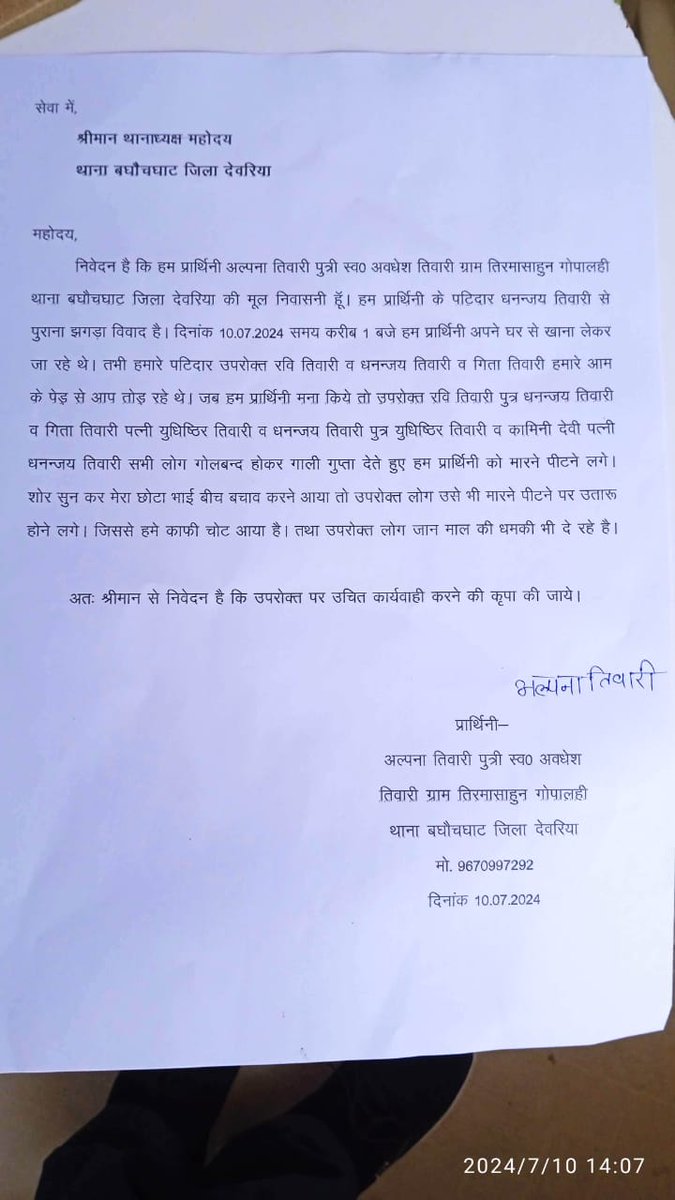 सेवा में,
श्रीमान थानाध्यक्ष महोदय
थाना बघौचघाट जिला देवरिया
महोदय,
निवेदन है कि हम प्रार्थिनी अल्पना तिवारी पुत्री स्व0 अवधेश तिवारी ग्राम तिरमासाहुन गोपालही
थाना बघौचघाट जिला देवरिया की मूल निवासनी हूॅ। हम प्रार्थिनी के पटिदार धनन्जय तिवारी से
पुराना झगड़ा विवाद है। दिनांक 10.07.2024 समय करीब 1 बजे हम प्रार्थिनी अपने घर से खाना लेकर
जा रहे थे। तभी हमारे पटिदार उपरोक्त रवि तिवारी व धनन्जय तिवारी व गिता तिवारी हमारे आम
के पेड़ से आप तोड़ रहे थे। जब हम प्रार्थिनी मना किये तो उपरोक्त रवि तिवारी पुत्र धनन्जय तिवारी
व गिता तिवारी पत्नी युधिष्ठिर तिवारी व धनन्जय तिवारी पुत्र युधिष्ठिर तिवारी व कामिनी देवी पत्नी
धनन्जय तिवारी सभी लोग गोलबन्द होकर गाली गुप्ता देते हुए हम प्रार्थिनी को मारने पीटने लगे।
शोर सुन कर मेरा छोटा भाई बीच बचाव करने आया तो उपरोक्त लोग उसे भी मारने पीटने पर उतारू
होने लगे। जिससे हमे काफी चोट आया है। तथा उपरोक्त लोग जान माल की धमकी भी दे रहे है।
अतः श्रीमान से निवेदन है कि उपरोक्त पर उचित कार्यवाही करने की कृपा की जाये।
अल्पना तिवारी
प्रार्थिनी–
अल्पना तिवारी पुत्री स्व0 अवधेश
तिवारी ग्राम तिरमासाहुन गोपालही
थाना बघौचघाट जिला देवरिया
मो. 9670997292
दिनांक 10.07.2024
2024/7/10 14:07